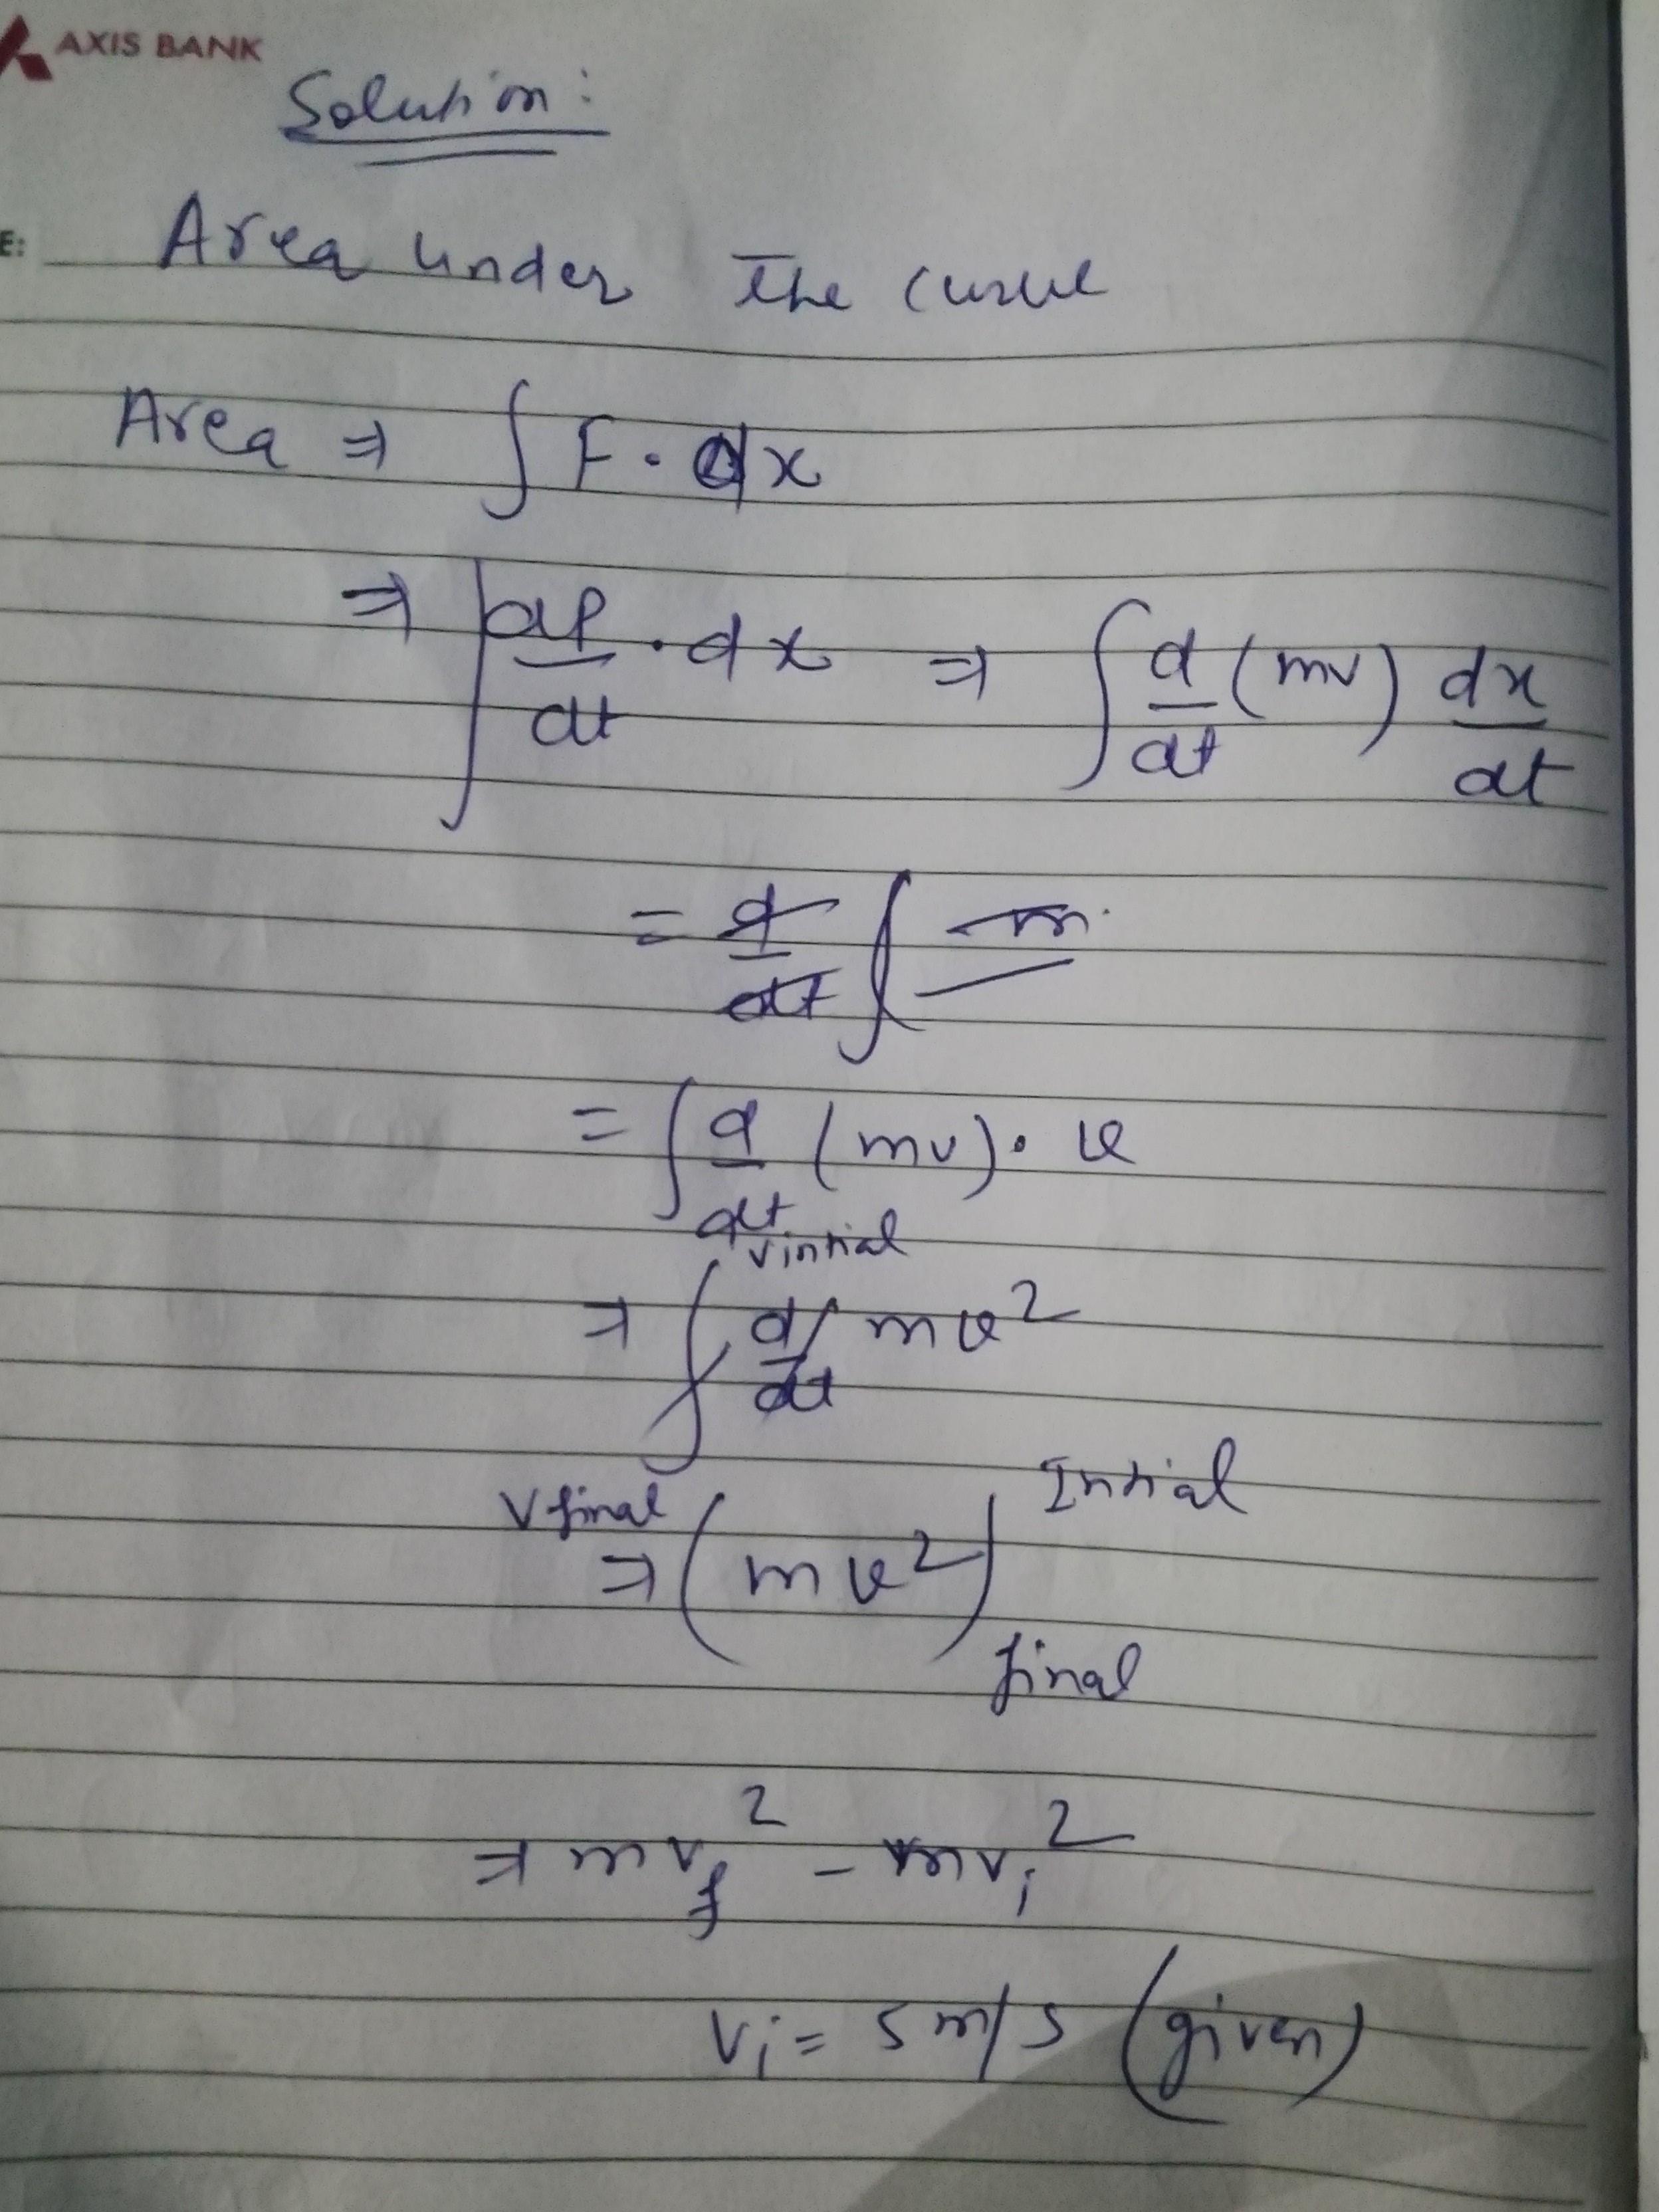 AXIS BANK
Solution:
E:
Area under the curve
Area ⇒ ∫ F · dx
⇒ ∫ dP/dt · dx ⇒ ∫ d/dt (mv) dx/dt
= d/dt ∫ m
= ∫ d/dt (mv) · v
v intial
⇒ ∫ d/dt mv²
v final
Intial
⇒ (mv²)
final
⇒ mv_f² - mv_i²
v_i = 5 m/s (given)